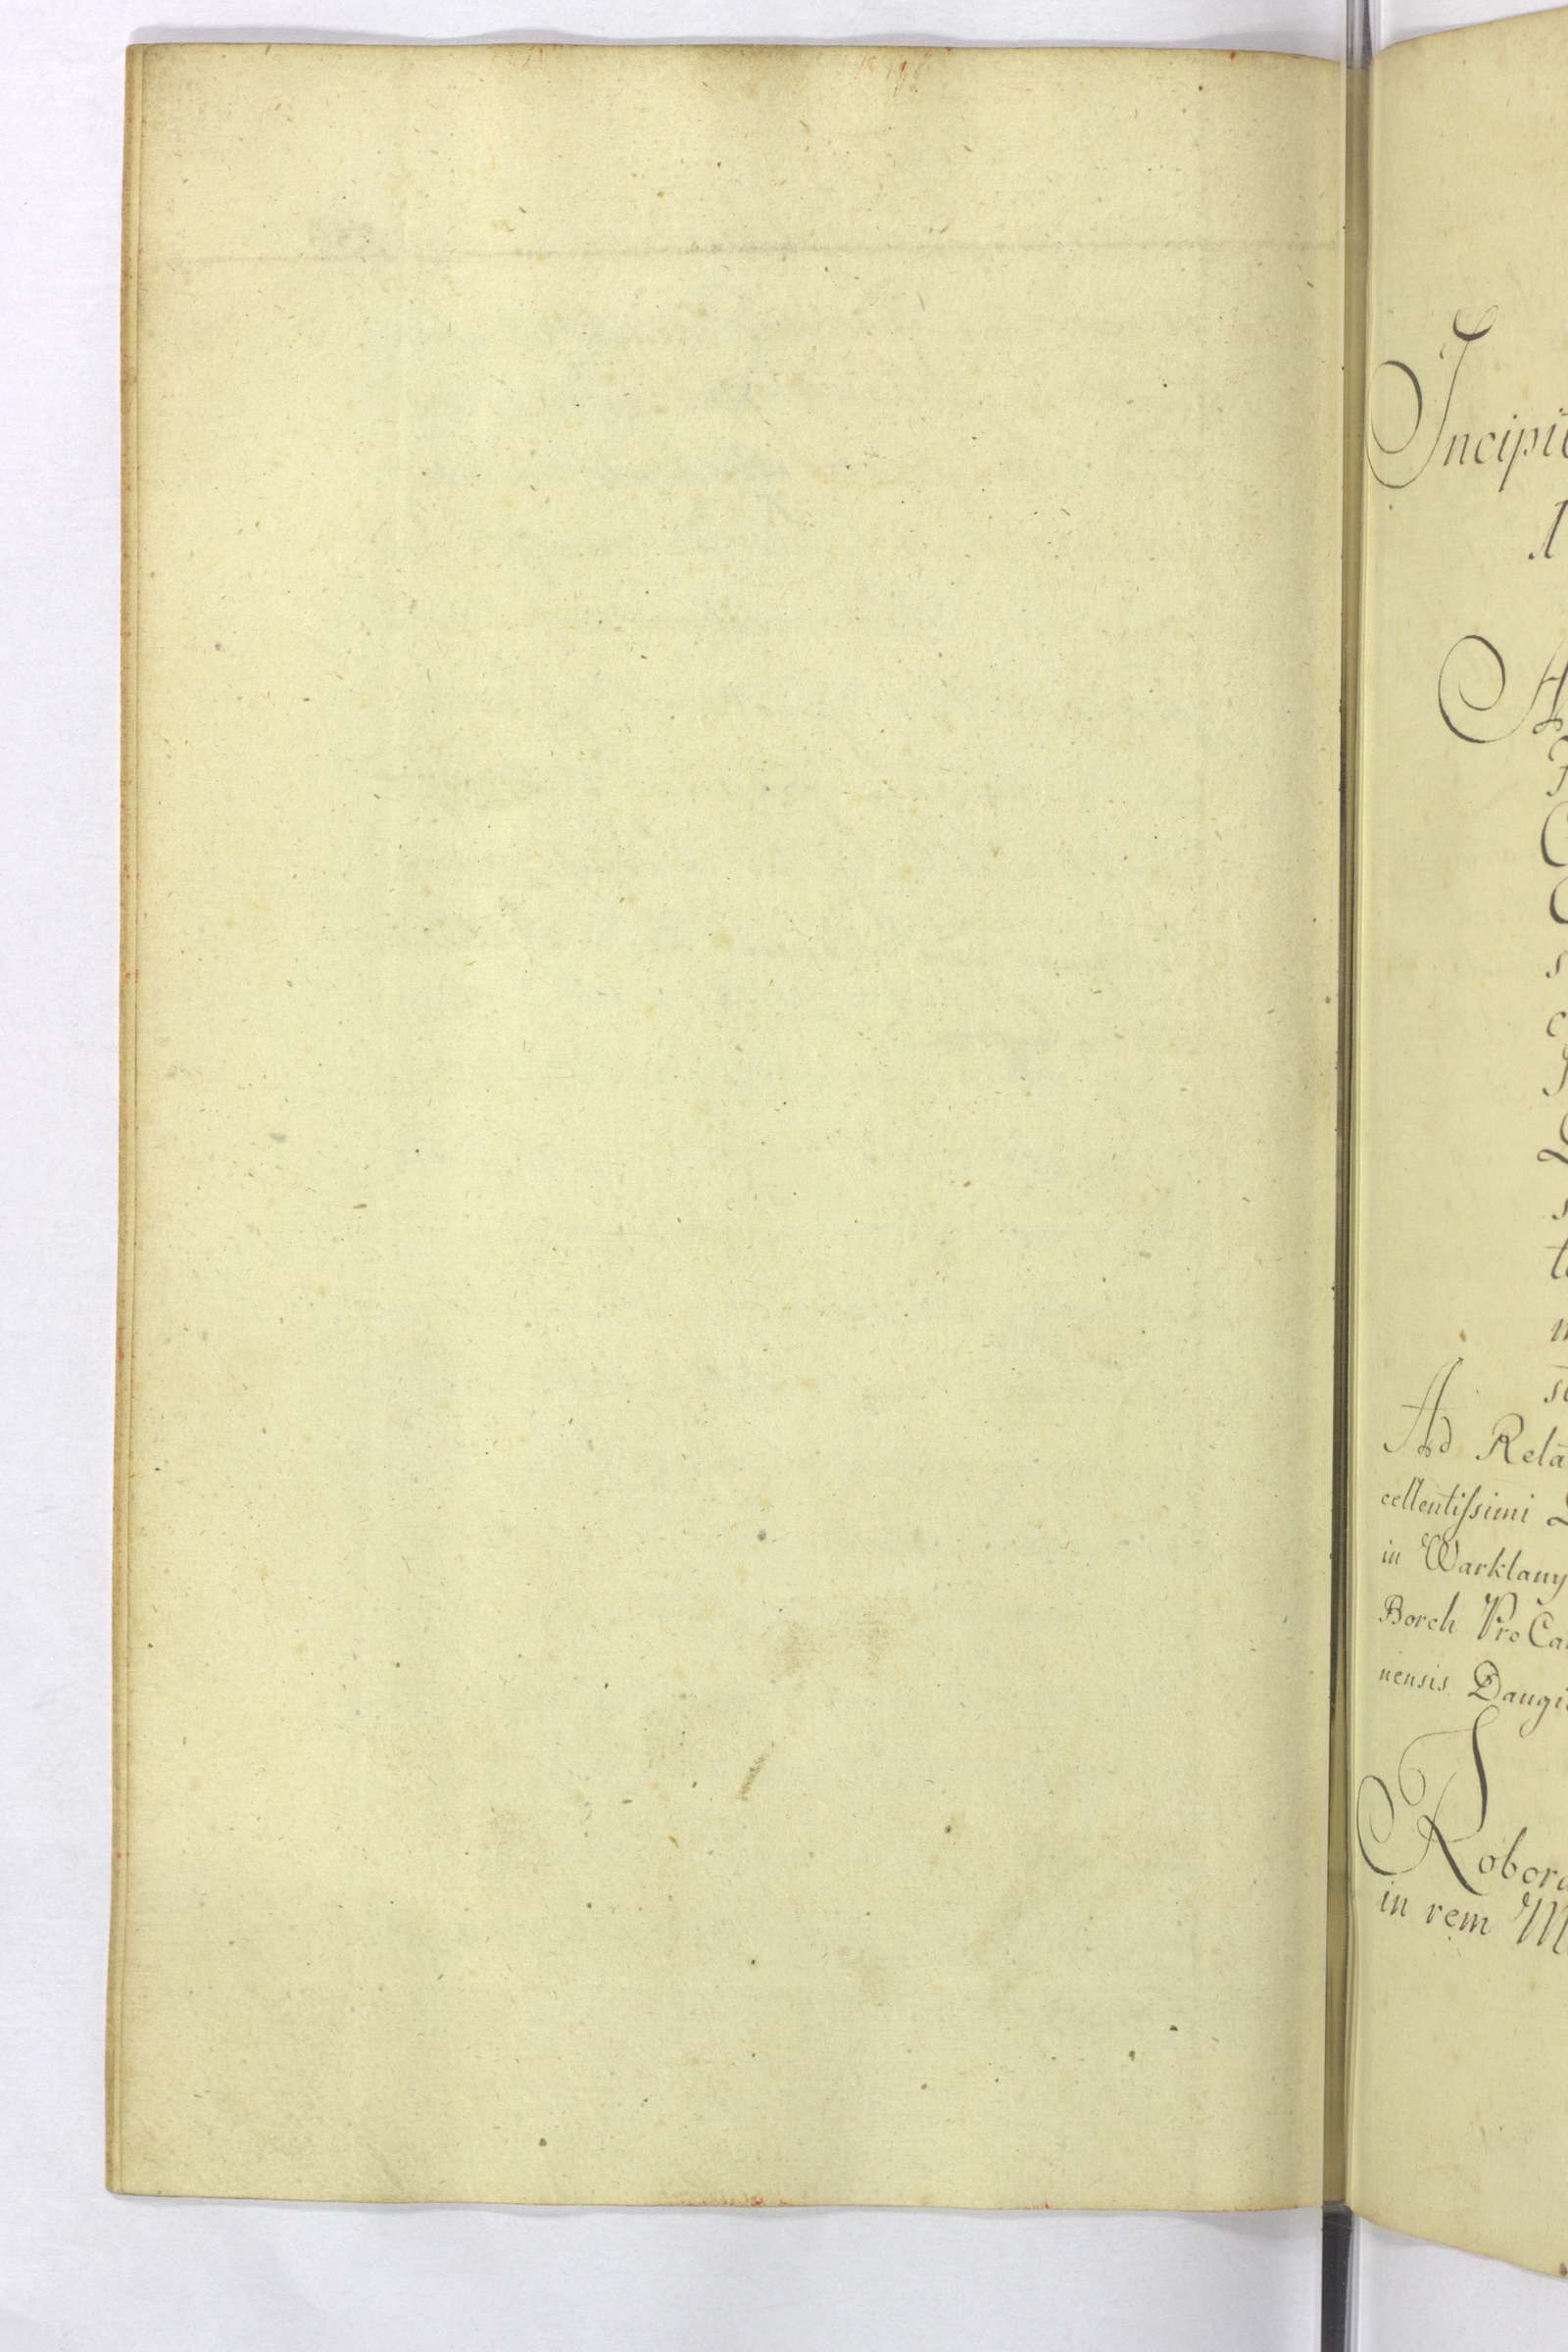 Incipi
A
s
c
s
t
Ad Rela
cellentissimi
in Warklany
Borch ProCa
nensis Daugi
Robora
in rem M